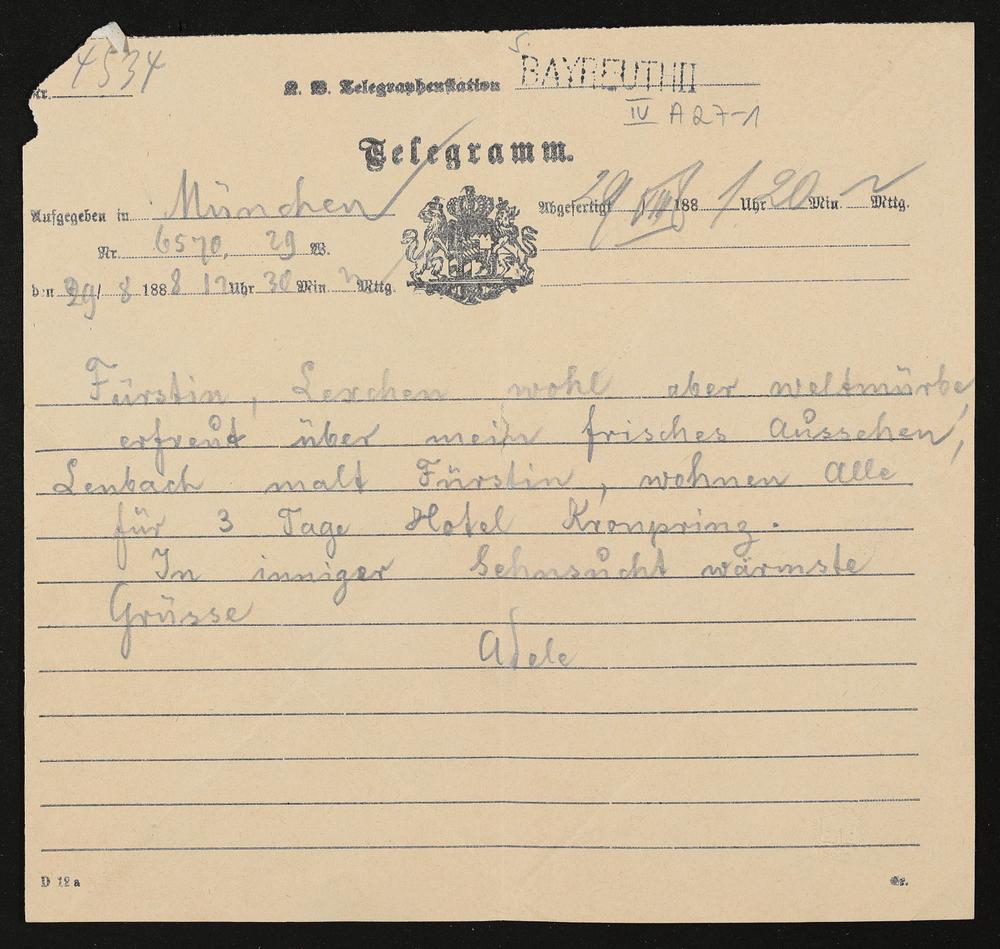 Nr. 4534
K. B. Telegraphenstation BAYREUTH II
IV A 27-1
Telegramm.
Aufgegeben in München
Abgefertigt 29/VIII 1888 1 Uhr 20 Min Mttg.
Nr. 6570, 29 W.
den 29/8 1888 12 Uhr 30 Min Mttg.
Fürstin, Lexchen wohl aber weltmürbe,
erfreut über mein frisches Aussehen,
Lenbach malt Fürstin, wohnen Alle
für 3 Tage Hotel Kronprinz.
In inniger Sehnsucht wärmste
Grüsse
Adele
D 12a
Gr.